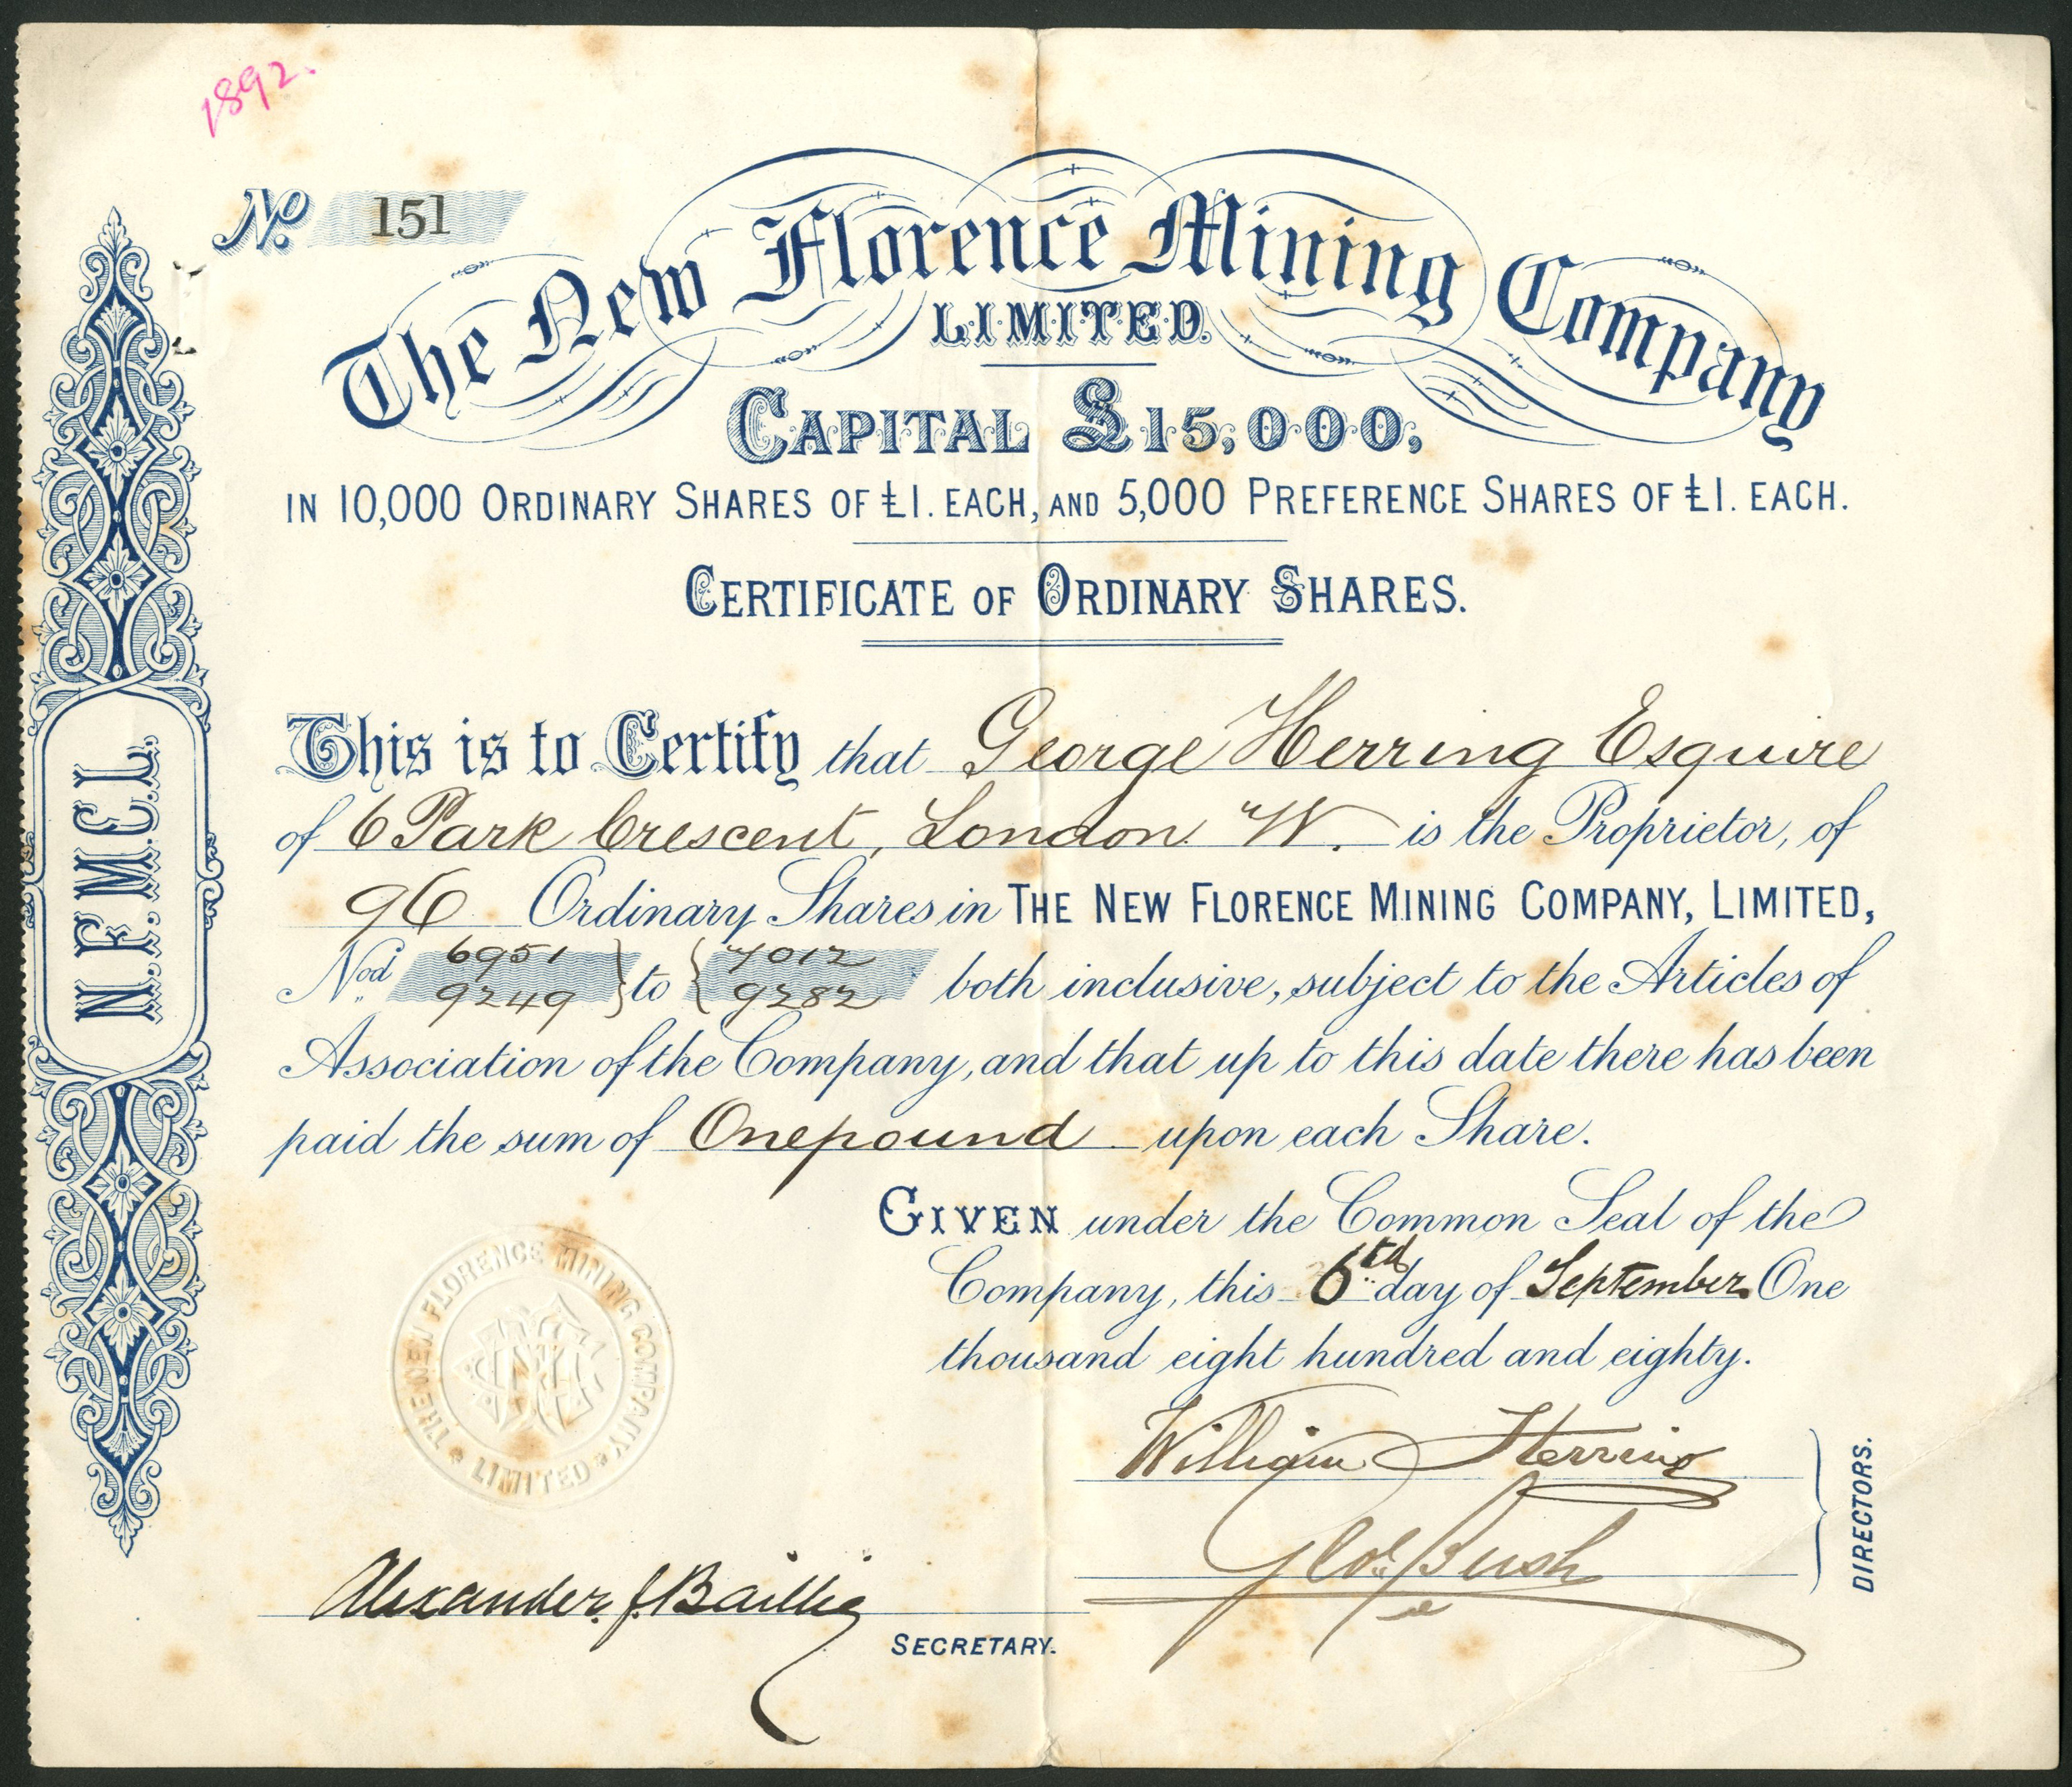 1892.
No. 151
The New Florence Mining Company
LIMITED.
CAPITAL £15,000,
IN 10,000 ORDINARY SHARES OF £1. EACH, AND 5,000 PREFERENCE SHARES OF £1. EACH.
CERTIFICATE OF ORDINARY SHARES.
N.F.M.C.L.
This is to Certify that George Herring Esquire
of 6 Park Crescent, London. W. is the Proprietor, of
96 Ordinary Shares in THE NEW FLORENCE MINING COMPANY, LIMITED,
Nos 6951 9249 } to { 7012 9282 both inclusive, subject to the Articles of
Association of the Company, and that up to this date there has been
paid the sum of One pound upon each Share.
GIVEN under the Common Seal of the
Company, this 6th day of September One
thousand eight hundred and eighty.
THE NEW FLORENCE MINING COMPANY LIMITED
William Herring
Geo. Bush
DIRECTORS.
Alexander. J. Baillie
SECRETARY.